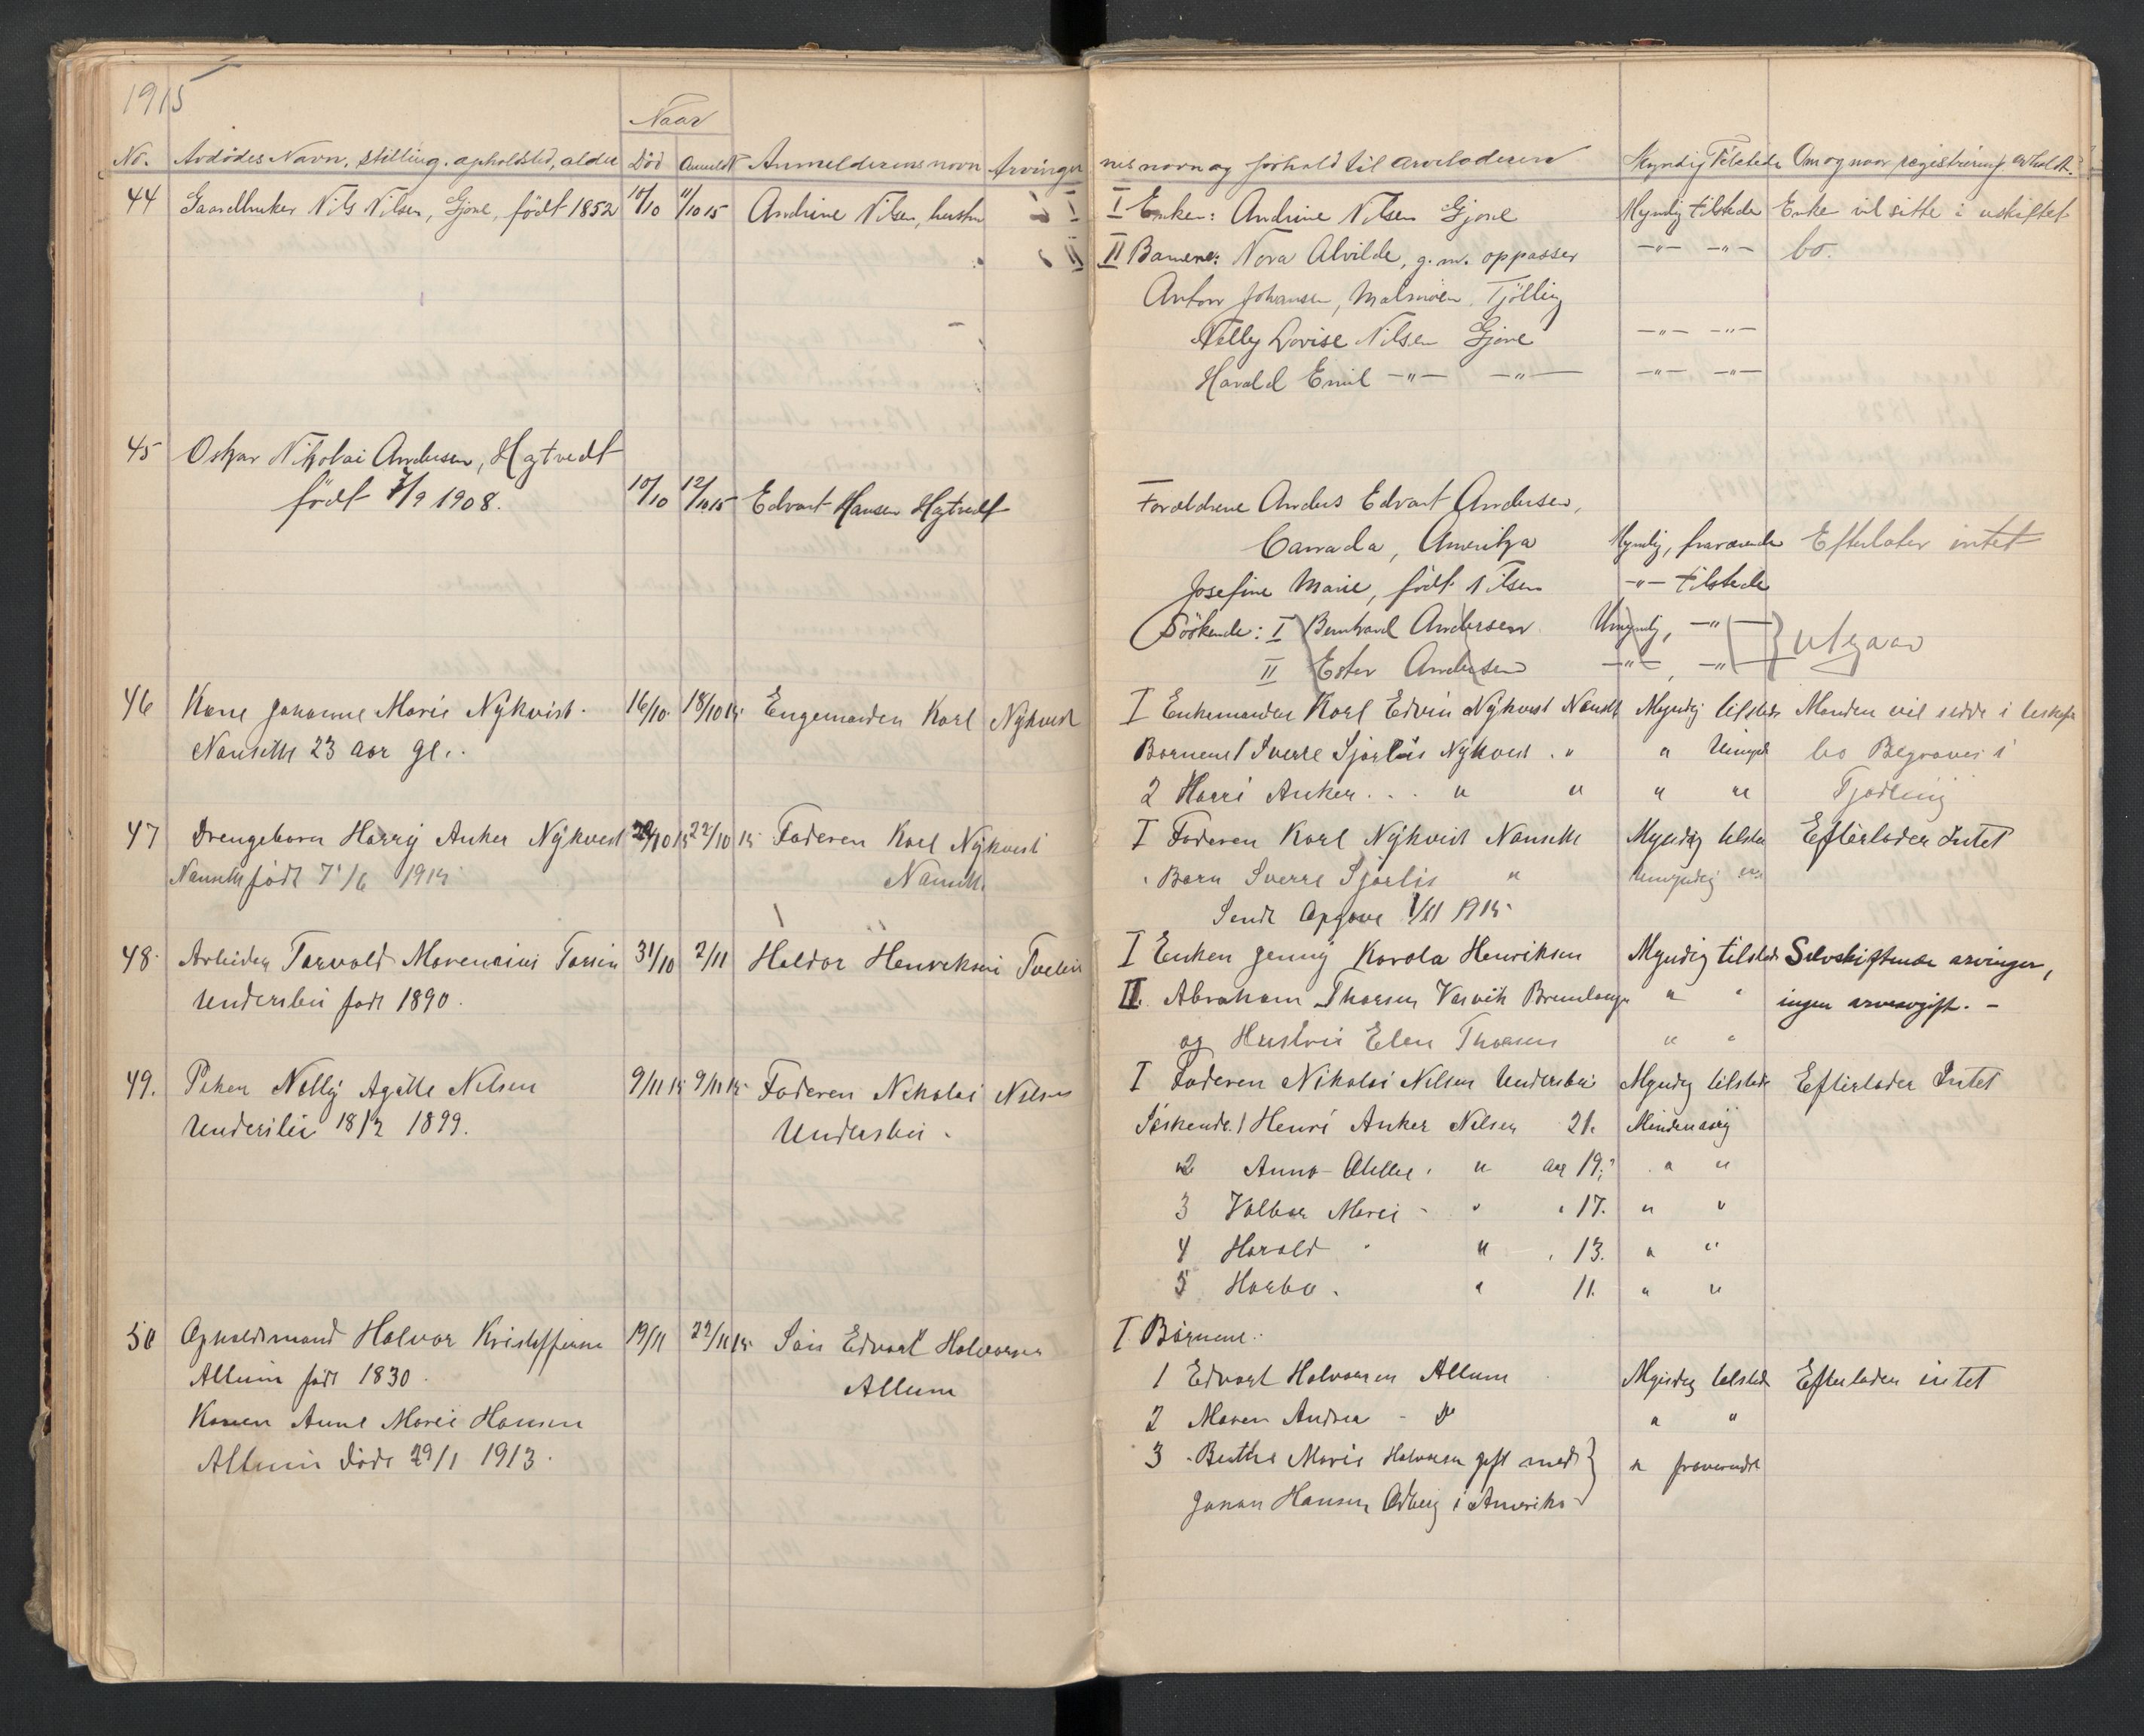 1915
Naar
No. Avdödes Navn, stilling, opholdsted, alder Död Anmeldt Anmelderens navn Arvinger
nes navn og forhold til arveladeren Myndig Tilstede Om og naar registrering avholdt.
44 Gaardbruker Nils Nilsen, Gjone, födt 1852 10/10 11/10 15 Andrine Nilsen, hustru I
I Enken: Andrine Nilsen Gjone Myndig tilstede Enke vil sitte i uskiftet
II
II Barnene: Nora Alvilde, g. m. oppasser —"— —"— bo.
Anton Johansen, Malmöen, Tjölling
Nelly Lovise Nilsen Gjone —"— —"—
Harald Emil —"— —"— —"— —"—
45 Oskar Nikolai Andersen, Hagtvedt
födt 7/9 1908. 10/10 12/10 15 Edvart Hansen Hagtvedt
Foreldrene Anders Edvart Andersen,
Canada, Amerika Myndig, fraværende Efterlater intet
Josefine Marie, födt Nilsen —"— tilstede
Söskende: I Bernthard Andersen Umyndig, —"—
II Ester Andersen —"—, —"— } utgaar
46 Karie Johanne Marie Nykvist. 16/10 18/10 15 Engemanden Karl Nykvist
Nanseth 23 aar gl.
I Enkemanden Karl Edvin Nykvist Nanseth Myndig tilstede Manden vil sidde i uskifte
Barnene 1 Sverre Sjarlis Nykvist " " Umynd bo Begraves i
2 Harri Anker . . . " " " " Tjødling
47 Drengebarn Harry Anker Nykvist 22/10 15 22/10 15 Faderen Karl Nykvist
Nanseth født 7/6 1915 Nanseth
I Faderen Karl Nykvist Nanseth Myndig tilstede Efterlader Intet
Barn Sverre Sjarlis " Umyndig "
Sendt Opgave 1/11 1915
48. Arbeider Torvald Marenius Torsen 31/10 2/11 Haldor Henriksen Tveten
Undersbu født 1890.
I Enken Jenny Karola Henriksen Myndig tilstede Selvskiftende arvinger,
II. Abraham Thorsen Vasvik Brunlanes " " ingen arveavgift. –
og Hustru Elen Thorsen " "
49. Piken Nelly Agatte Nilsen 9/11 15 9/11 15 Faderen Nikolai Nilsen
Undersbu 18/2 1899. Undersbu.
I Faderen Nikolai Nilsen Undersbu Myndig tilstede Efterlader Intet
Søskende. 1 Henri Anker Nilsen 21. Mindenaarig
2 Anna " aar 19. " "
3 Valbor Marie " " 17. " "
4 Harald " " 13. " "
5 " 11. " "
50 Opholdsmand Halvor Kristoffersen 19/11 22/11 15 Søn Edvart Halvorsen
Allum født 1830. Allum
Konen Anne Marie Hansen
Allum døde 29/1 1913.
I Børnene:
1 Edvart Halvorsen Allum Myndig tilstede Efterlader intet
2 Maren Andrea - Do " "
3 Berthe Marie Halvorsen gift med } " fraverende
Johan Hansen i Amerika